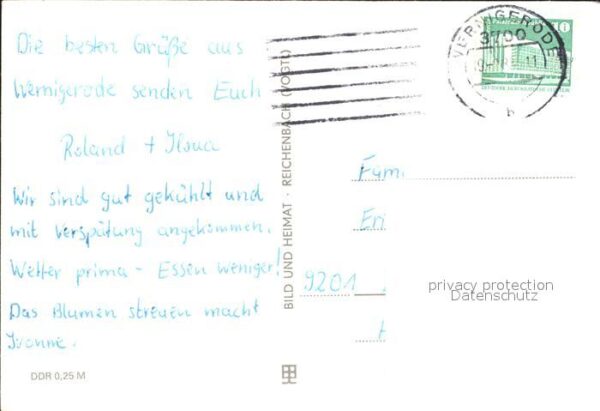 Die besten Grüße aus
Wernigerode senden Euch
Roland + Ilona
Wir sind gut gekühlt und
mit Verspätung angekommen.
Wetter prima - Essen weniger!
Das Blumen streuen macht
Yvonne.
DDR 0,25 M
BILD UND HEIMAT · REICHENBACH (VOGTL)
WERNIGERODE
3700
b
Fam.
Eri
9201
privacy protection
Datenschutz